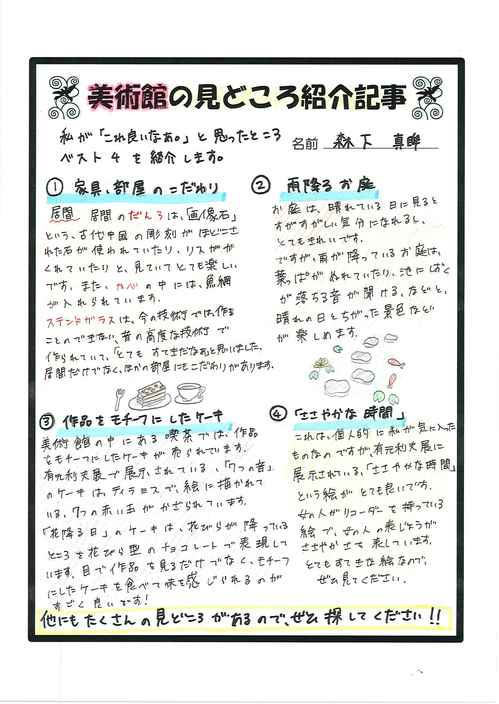 美術館の見どころ紹介記事
私が「これ良いなあ。」と思ったところ
ベスト4を紹介します。
名前 森下 真暉
① 家具、部屋のこだわり
居間 居間のだんろは、「画像石」
という、古代中国の彫刻がほどこさ
れた石が使われていたり、リスがか
くれていたりと、見ていてとても楽しい
です。また、かべの中には、魚網
が入れられています。
ステンドガラスは、今の技術では、作る
ことのできない、昔の高度な技術で
作られていて、「とてもすてきだなぁと思いました。
居間だけでなく、ほかの部屋にもこだわりがあります。
② 雨降るお庭
お庭は、晴れている日に見ると
すがすがしい気分になれるし、
とてもきれいです。
ですが、雨が降っているお庭は、
葉っぱがぬれていたり、池にしずく
が落ちる音が聞ける、などと、
晴れの日とちがった景色など
が楽しめます。
③ 作品をモチーフにしたケーキ
美術館の中にある喫茶では、作品
をモチーフにしたケーキが売られています。
有元利夫展で展示されている、「7つの音」
のケーキは、ティラミスで、絵に描かれて
いる、7つの赤い玉がかざられています。
「花降る日」のケーキは、花びらが降っている
ところを花びら型のチョコレートで表現して
います。目で作品を見るだけでなく、モチーフ
にしたケーキを食べて味を感じられるのが
すごく良いです!
④ 「ささやかな時間」
これは、個人的に私が気に入った
ものなのですが、有元利夫展に
展示されている、「ささやかな時間」
という絵がとても良いです。
女の人がリコーダーを持っている
絵で、女の人の表じょうが
ささやかさを表しています。
とてもすてきな絵なので、
ぜひ見てください。
他にもたくさんの見どころがあるので、ぜひ探してください!!